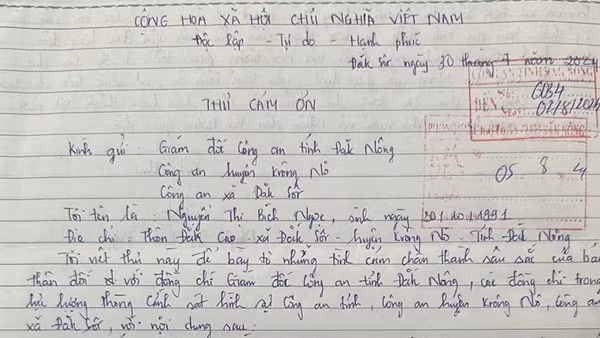 CỘNG HOÀ XÃ HỘI CHỦ NGHĨA VIỆT NAM
Độc Lập - Tự do - Hạnh phúc
Đắk Sôr ngày 30 tháng 7 năm 2024
CÔNG AN TỈNH ĐẮK NÔNG
ĐẾN
6034
02/8/2024
THƯ CẢM ƠN
Kính gửi: Giám đốc Công an tỉnh Đắk Nông
Công an huyện Krông Nô
05 8 24
Công an xã Đắk Sôr
Tôi tên là: Nguyễn Thị Bích Ngọc, sinh ngày 20/10/1991
Địa chỉ: Thôn Đắk Cao - xã Đắk Sôr - huyện Krông Nô - Tỉnh Đắk Nông
Tôi viết thư này để bày tỏ những tình cảm chân thành sâu sắc của bản
thân đối với đồng chí Giám đốc Công an tỉnh Đắk Nông, các đồng chí trong
lực lượng phòng Cảnh sát hình sự Công an tỉnh, Công an huyện Krông Nô, Công an
xã Đắk Sôr, với nội dung sau: